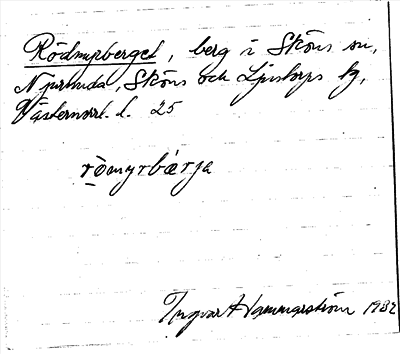 Rödmyrberget, berg i Sköns sn,
Njurunda, Sköns och Ljustorps tg,
Västernorrl. l. 25
rö̀myrbær̀ja
Ingvar Hammarström 1932